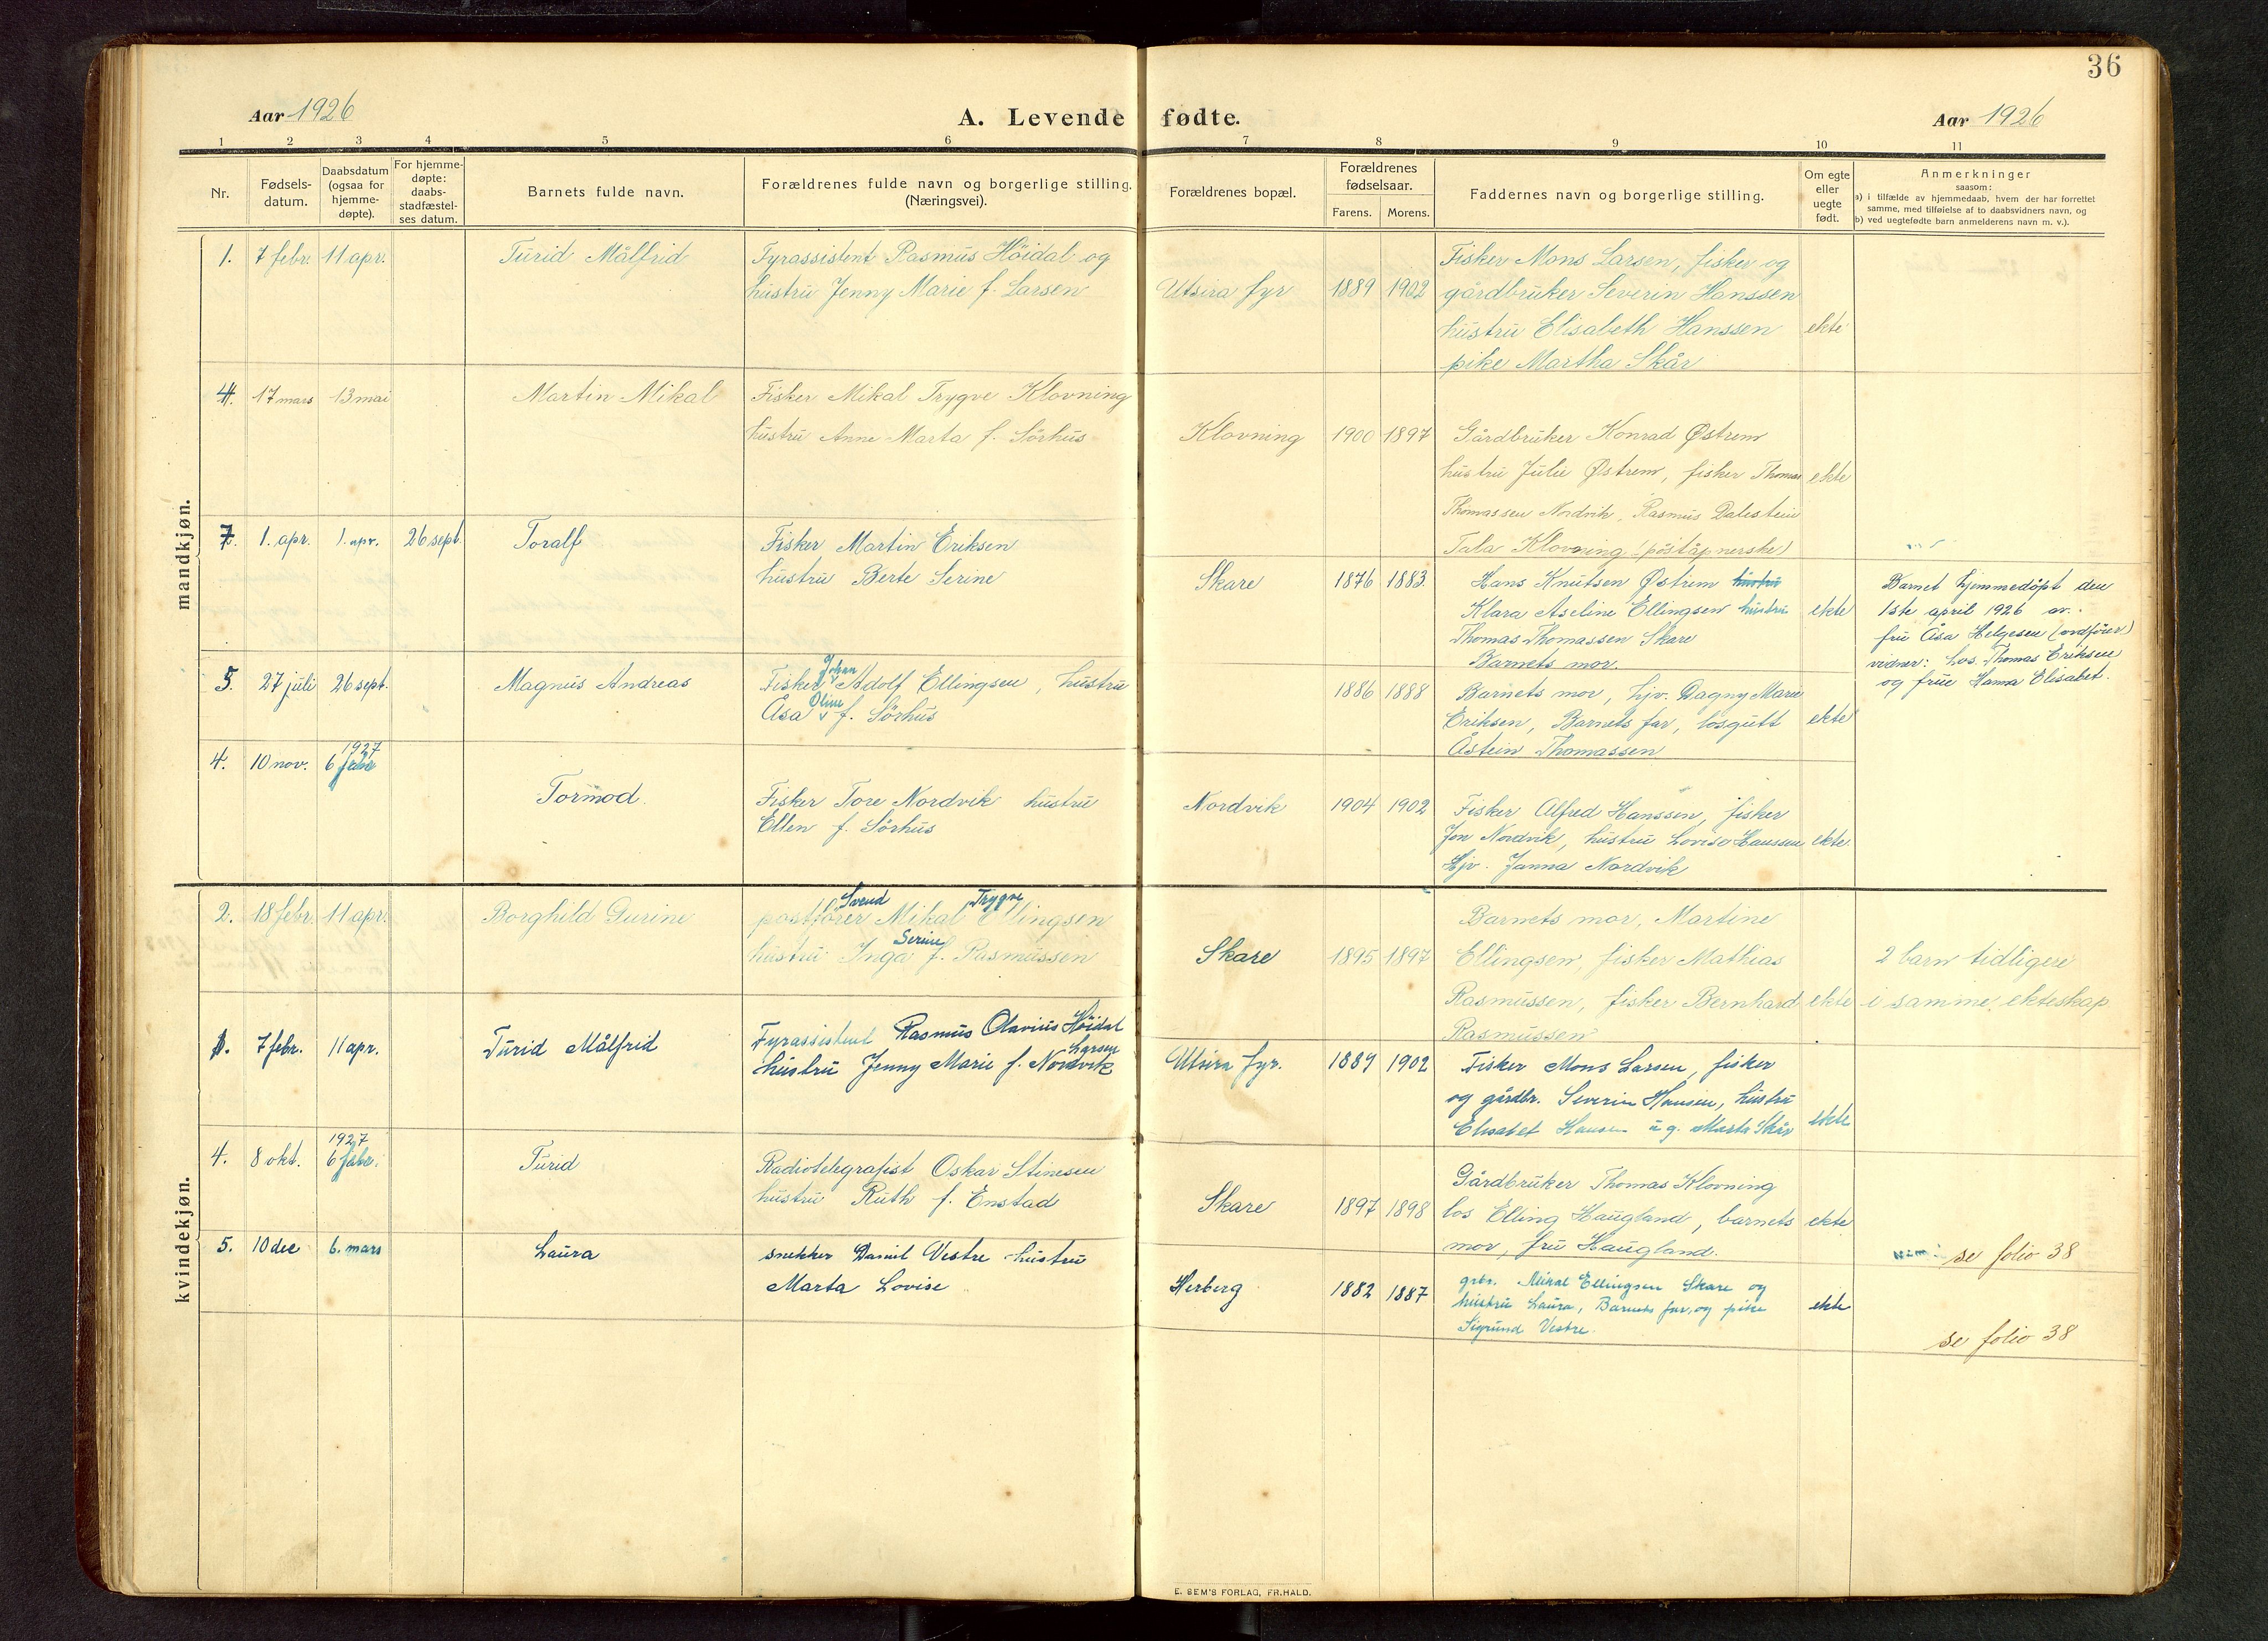 36
Aar 1926
A. Levende fødte.
Aar 1926
1 2 3 4 5 6 7 8 9 10 11
Nr.
Fødsels-
datum.
Daabsdatum
(ogsaa for
hjemme-
døpte).
For hjemme-
døpte:
daabs-
stadfæstel-
ses datum.
Barnets fulde navn.
Forældrenes fulde navn og borgerlige stilling.
(Næringsvei).
Forældrenes bopæl.
Forældrenes
fødselsaar.
Farens. Morens.
Faddernes navn og borgerlige stilling.
Om egte
eller
uegte
født.
Anmerkninger
saasom:
a) i tilfælde av hjemmedaab, hvem der har forrettet
samme, med tilføielse af to daabsvidners navn, og
b) ved uegtefødte barn anmelderens navn m. v.).
mandkjøn.
1. 7 febr. 11 apr. Turid Målfrid
Fyrassistent Rasmus Höidal og
hustru Jenny Marie f. Larsen
Utsira fyr 1889 1902
Fisker Mons Larsen, fisker og
gårdbruker Severin Hanssen
hustru Elisabeth Hanssen
pike Martha Skår
ekte
4. 17 mars 13 mai Martin Mikal
Fisker Mikal Trygve Klovning
hustru Anne Marta f. Sörhus
Klovning 1900 1897
Gårdbruker Konrad Østrem
hustru Julie Østrem, fisker Thomas
Thomassen Nordvik, Rasmus Dalestein
Tala Klovning (poståpnerske)
ekte
7. 1. apr. 1. apr. 26 sept. Toralf
Fisker Martin Eriksen
hustru Berte Serine
Skare 1876 1883
Hans Knutsen Østrem hustru
Klara Aseline Ellingsen hustru
Thomas Thomassen Skare
Barnets mor.
ekte
Barnet hjemmedöpt den
1ste april 1926 av.
fru Åsa Helgesen (ordförer)
vidner: los. Thomas Eriksen
og frue Hanna Elisabet.
5. 27 juli 26 sept. Magnus Andreas
Johan
Fisker Adolf Ellingsen, hustru
Oline
Åsa f. Sörhus
1886 1888
Barnets mor, hjv. Dagny Marie
Eriksen, Barnets far, losgutt
Åstein Thomassen
ekte
1927
4. 10 nov. 6 febr Tormod.
Fisker Tore Nordvik hustru
Ellen f. Sörhus
Nordvik 1904 1902
Fisker Alfred Hanssen, fisker
Jon Nordvik, hustru Lovise Hanssen
Hjv. Janna Nordvik
ekte.
kvindekjøn.
2. 18 febr. 11 apr. Borghild Gurine
Svend Trygve
postförer Mikal Ellingsen
Serine
hustru Inga f. Rasmussen
Skare 1895 1897
Barnets mor, Martine
Ellingsen, fisker Mathias
Rasmussen, fisker Bernhard
Rasmussen
ekte
2 barn tidligere
i samme ekteskap
1. 7 febr. 11 apr. Turid Målfrid
Fyrassistent Rasmus Olavius Höidal
Larsen
hustru Jenny Marie f. Nordvik
Utsira fyr. 1889 1902
Fisker Mons Larsen, fisker
og gårdbr. Severin Hansen, hustru
Elisabet Hansen u.g. Marta Skår
ekte
1927
4. 8 okt. 6 febr. Turid
Radiotelegrafist Oskar Stinesen
hustru Ruth f. Enstad
Skare 1897 1898
Gårdbruker Thomas Klovning
los Elling Haugland, barnets
mor, fru Haugland.
ekte
se folio 38
5. 10 dec 6. mars Laura
snekker Daniel Vestre hustru
Marta Lovise
Herberg 1882 1887
grbr. Mikal Ellingsen Skare og
hustru Laura, Barnets far, og pike
Sigrund Vestre.
ekte
se folio 38
E. SEM'S FORLAG, FR.HALD.